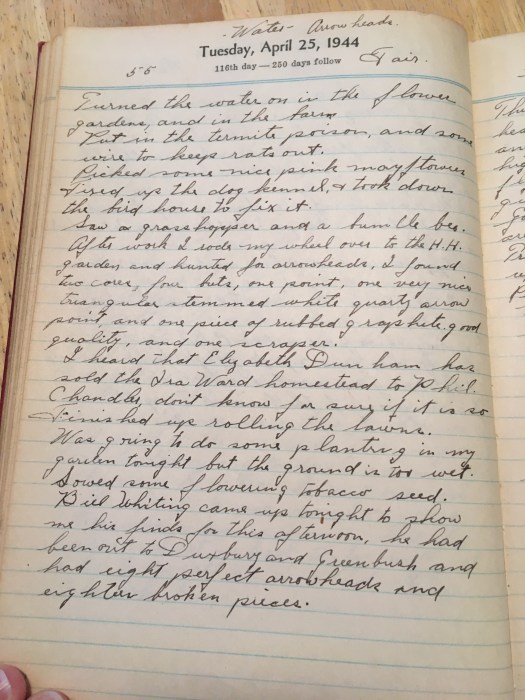 -Water- Arrowheads.
Tuesday, April 25, 1944
116th day — 250 days follow
55
Fair.
Turned the water on in the flower
gardens, and in the farm
Put in the termite poison, and some
wire to keep rats out.
Picked some nice pink mayflowers
Fixed up the dog kennel, & took down
the bird house to fix it.
Saw a grasshopper and a bumble bee.
After work I rode my wheel over to the H.H.
garden and hunted for arrowheads, I found
two cores, four buts, one point, one very nice
triangular stemmed white quartz arrow
point, and one piece of rubbed graphite, good
quality, and one scraper.
I heard that Elizabeth Dunham has
sold the Ira Ward homestead to Phil.
Chandler, dont know for sure if it is so
Finished up rolling the lawns.
Was going to do some planting in my
garden tonight but the ground is too wet.
Sowed some flowering tobacco seed.
Bill Whiting came up tonight to show
me his finds for this afternoon, he had
been out to Duxbury and Greenbush and
had eight perfect arrowheads and
eighteen broken pieces.